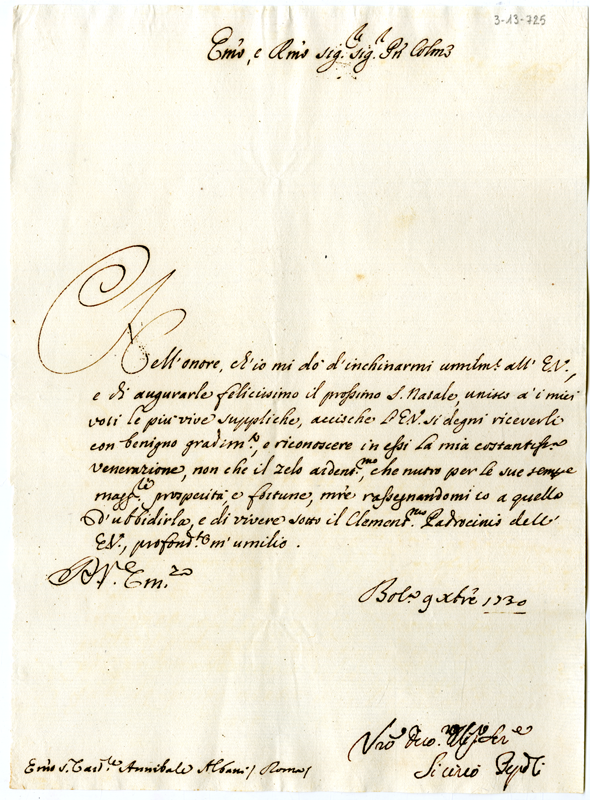 3-13-725
Em̃o, e Rm̃o Sig.re Sig.r Prñ Colmo
Nell'onore, ch'io mi dò d'inchinarmi umilm.e all' E.V.,
e di augurarle felicissimo il prossimo S. Natale, unisco a' i miei
voti le più vive suppliche, acciochè l'E.V. si degni riceverli
con benigno gradim.to, e riconoscere in essi la mia costantiss.a
venerazione, non che il zelo ardent.mo, che nutro per le sue sempre
magg.ri prosperità e fortune, m̃re rassegnandomi io a quello
d'ubbidirla, e di vivere sotto il Clement.mo Padrocinio dell'
E.V., profond.te m'umilio.
D. V. Em.za
Bol.a 9 Xbre 1730
Vro Devo. Ser.e
Sicinio Pepoli
Em̃o S. Card.le Annibale Albani / Roma /